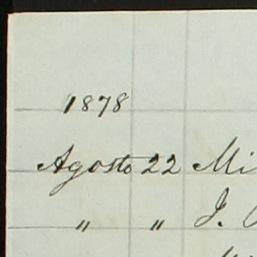 1878
Agosto 22 Mi
" " J.